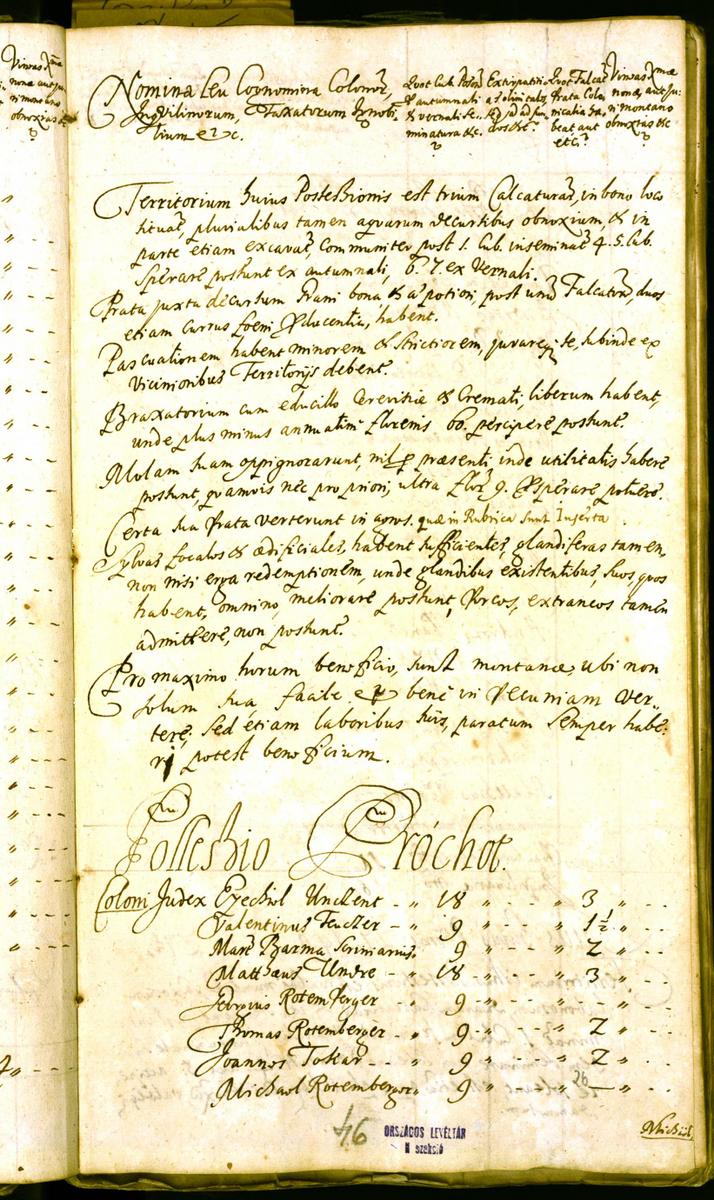 Nomina seu Cognomina Colonor,
Inqvilinorum, & Taxatorum Ignobi-
lium etc.
Qvot Cub. Poson
& autumnali
& vernali se-
minatura &c.
?
Extirpatitia
?
Qvot Falcat
Prata Colo
nicalia ha-
beat aut
etc?
Vineas Xmæ
nonæ, aut ju:
ri montano
obnoxias &c
?
Territorium huius Possessionis est trium Calcaturar, in bono loco
situat, pluvialibus tamen aqvarum decursibus obnoxium, & in
parte etiam excavat, Communiter post 1. Cub. inseminat 4. 5. Cub.
Sperare possunt ex autumnali, 6. 7. ex Vernali.
Prata juxta decursum Grani bona, & a potiori, post unu Falcator, duos
etiam Currus foeni producentia, habent.
Pascuationem habent minorem & Strictiorem, juvareqz se, subinde ex
Vicinioribus Territorijs debent.
Braxatorium cum educillo Cerevisiæ & Cremati, liberum habent,
unde plus minus annuatim florenis 60. percipere possunt.
Molam suam oppignorarunt, nil p præsenti, inde utilitatis habere
possunt, qvamvis nec pro priori, ultra flor 9. Sperare potuere.
Certa sua Prata verterunt in agros. quæ in Rubrica sunt Inserta.
Sylvas focales & ædificiales, habent sufficientes, glandiferas tamen,
non nisi erga redemptionem, unde glandibus existentibus, suos, quos
habent, omnino, meliorare possunt, Porcos, extraneos tamen
admittere, non possunt.
Pro maximo horum beneficio, sunt montanæ, ubi non
solum sua facile et bene in Pecuniam ver-
tere, Sed etiam laboribus suis, paratum semper habe-
ri potest beneficium.
Possessio Próchot.
Coloni Judex Ezechiel Unczent - „ 18 „ - - „ 3 „ - -
Valentinus Teuczer - „ 9 „ - - „ 1½ „ - -
Mart Barma Scriniarius „ 9 „ - - „ 2 „ - -
Matthæus Undre - „ 18 „ - - „ 3 „ - -
Georgius Rotemperger - „ 9 „ - - „ - - „ - -
Thomas Rotemberger - „ 9 „ - - „ 2 „ - -
Joannes Tokar - - „ 9 „ - - „ 2 „ - -
Michael Rotemberger „ 9 „ - - „ — „ - -
26
46
ORSZÁGOS LEVÉLTÁR
II szekció
Michael,